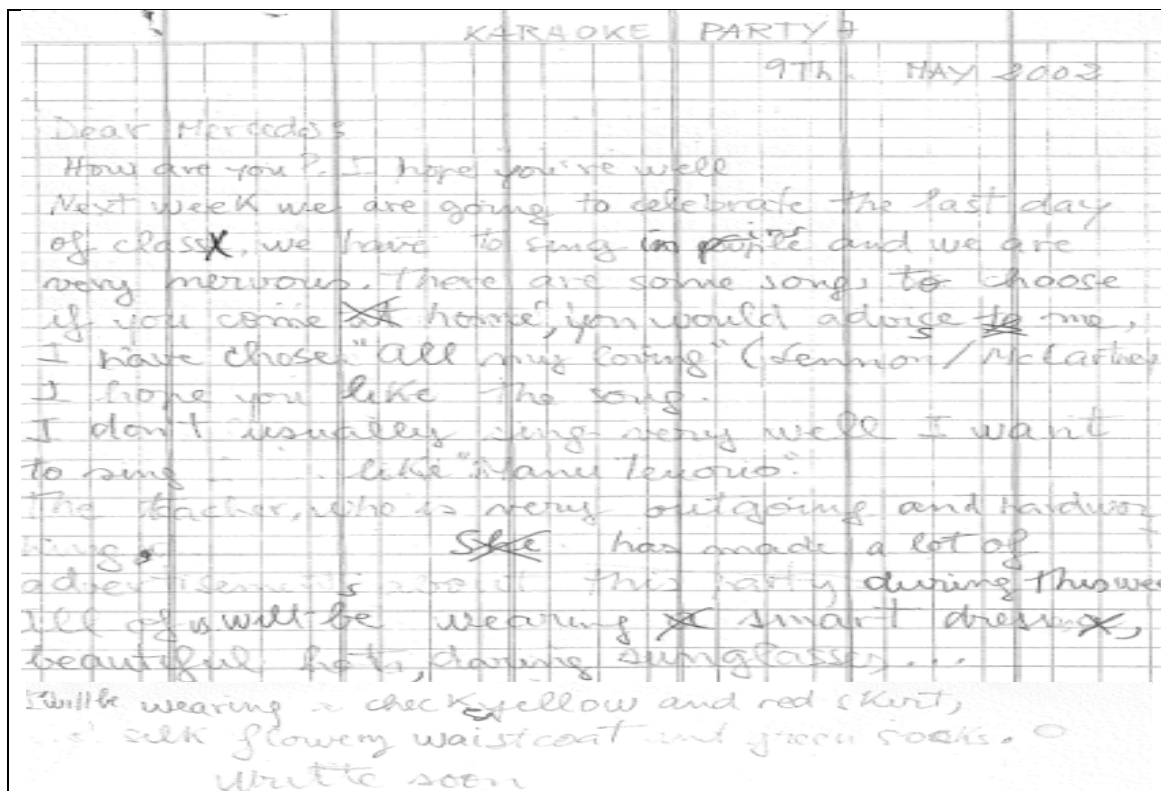 KARAOKE PARTY
9Th. MAY 2002
Dear Mercedes
How are you?. I hope you're well
Next week we are going to celebrate the last day
of class, we have to sing in pairs and we are
very nervous. There are some songs to choose
if you come at home, you would advise to me,
I have chose "All my loving" (Lennon/McCartney
I hope you like the song.
I don't usually sing very well I want
to sing like "Manu Tenorio".
The teacher, who is very outgoing and hardwor
king, She has made a lot of
advertisements about this party during this wee
All of us will be wearing smart dress,
beautiful hats, daring sunglasses...
I will be wearing a check yellow and red skirt,
silk flowery waistcoat and green socks.
Writte soon